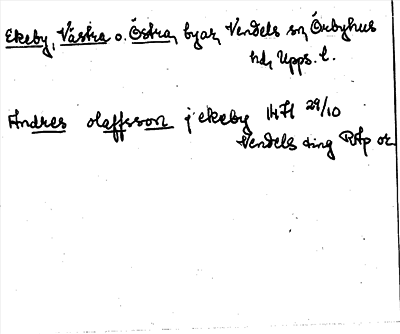 Ekeby, Västra o. Östra, byar, Vendels sn, Örbyhus
hd, Upps. l.
Andres olaffsson j ekeby 1471 29/10
Vendels ting RAp or